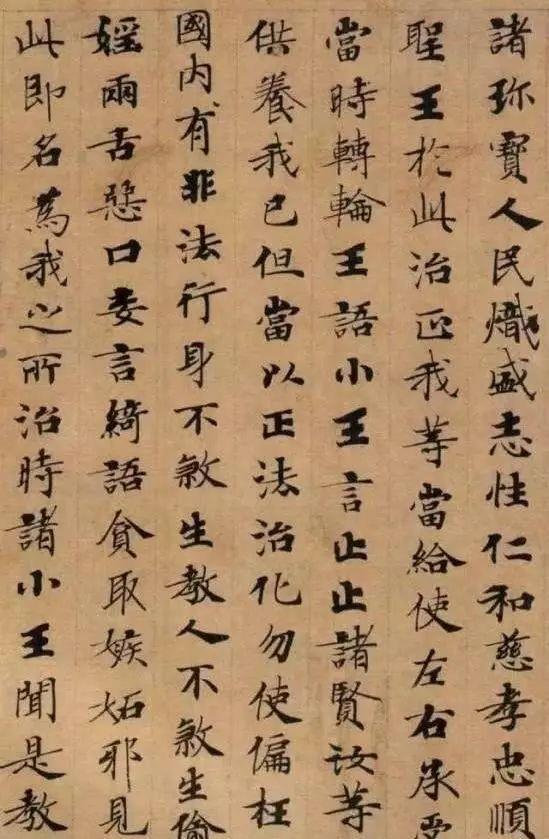 諸珎寶人民熾盛志性仁和慈孝忠順
聖王於此治正我等當給使左右承
當時轉輪王語小王言止止諸賢汝等
供養我已但當以正法治化勿使偏枉
國內有非法行身不煞生教人不煞生偷
婬兩舌惡口妄言綺語貪取嫉妬邪見
此即名為我之所治時諸小王聞是教